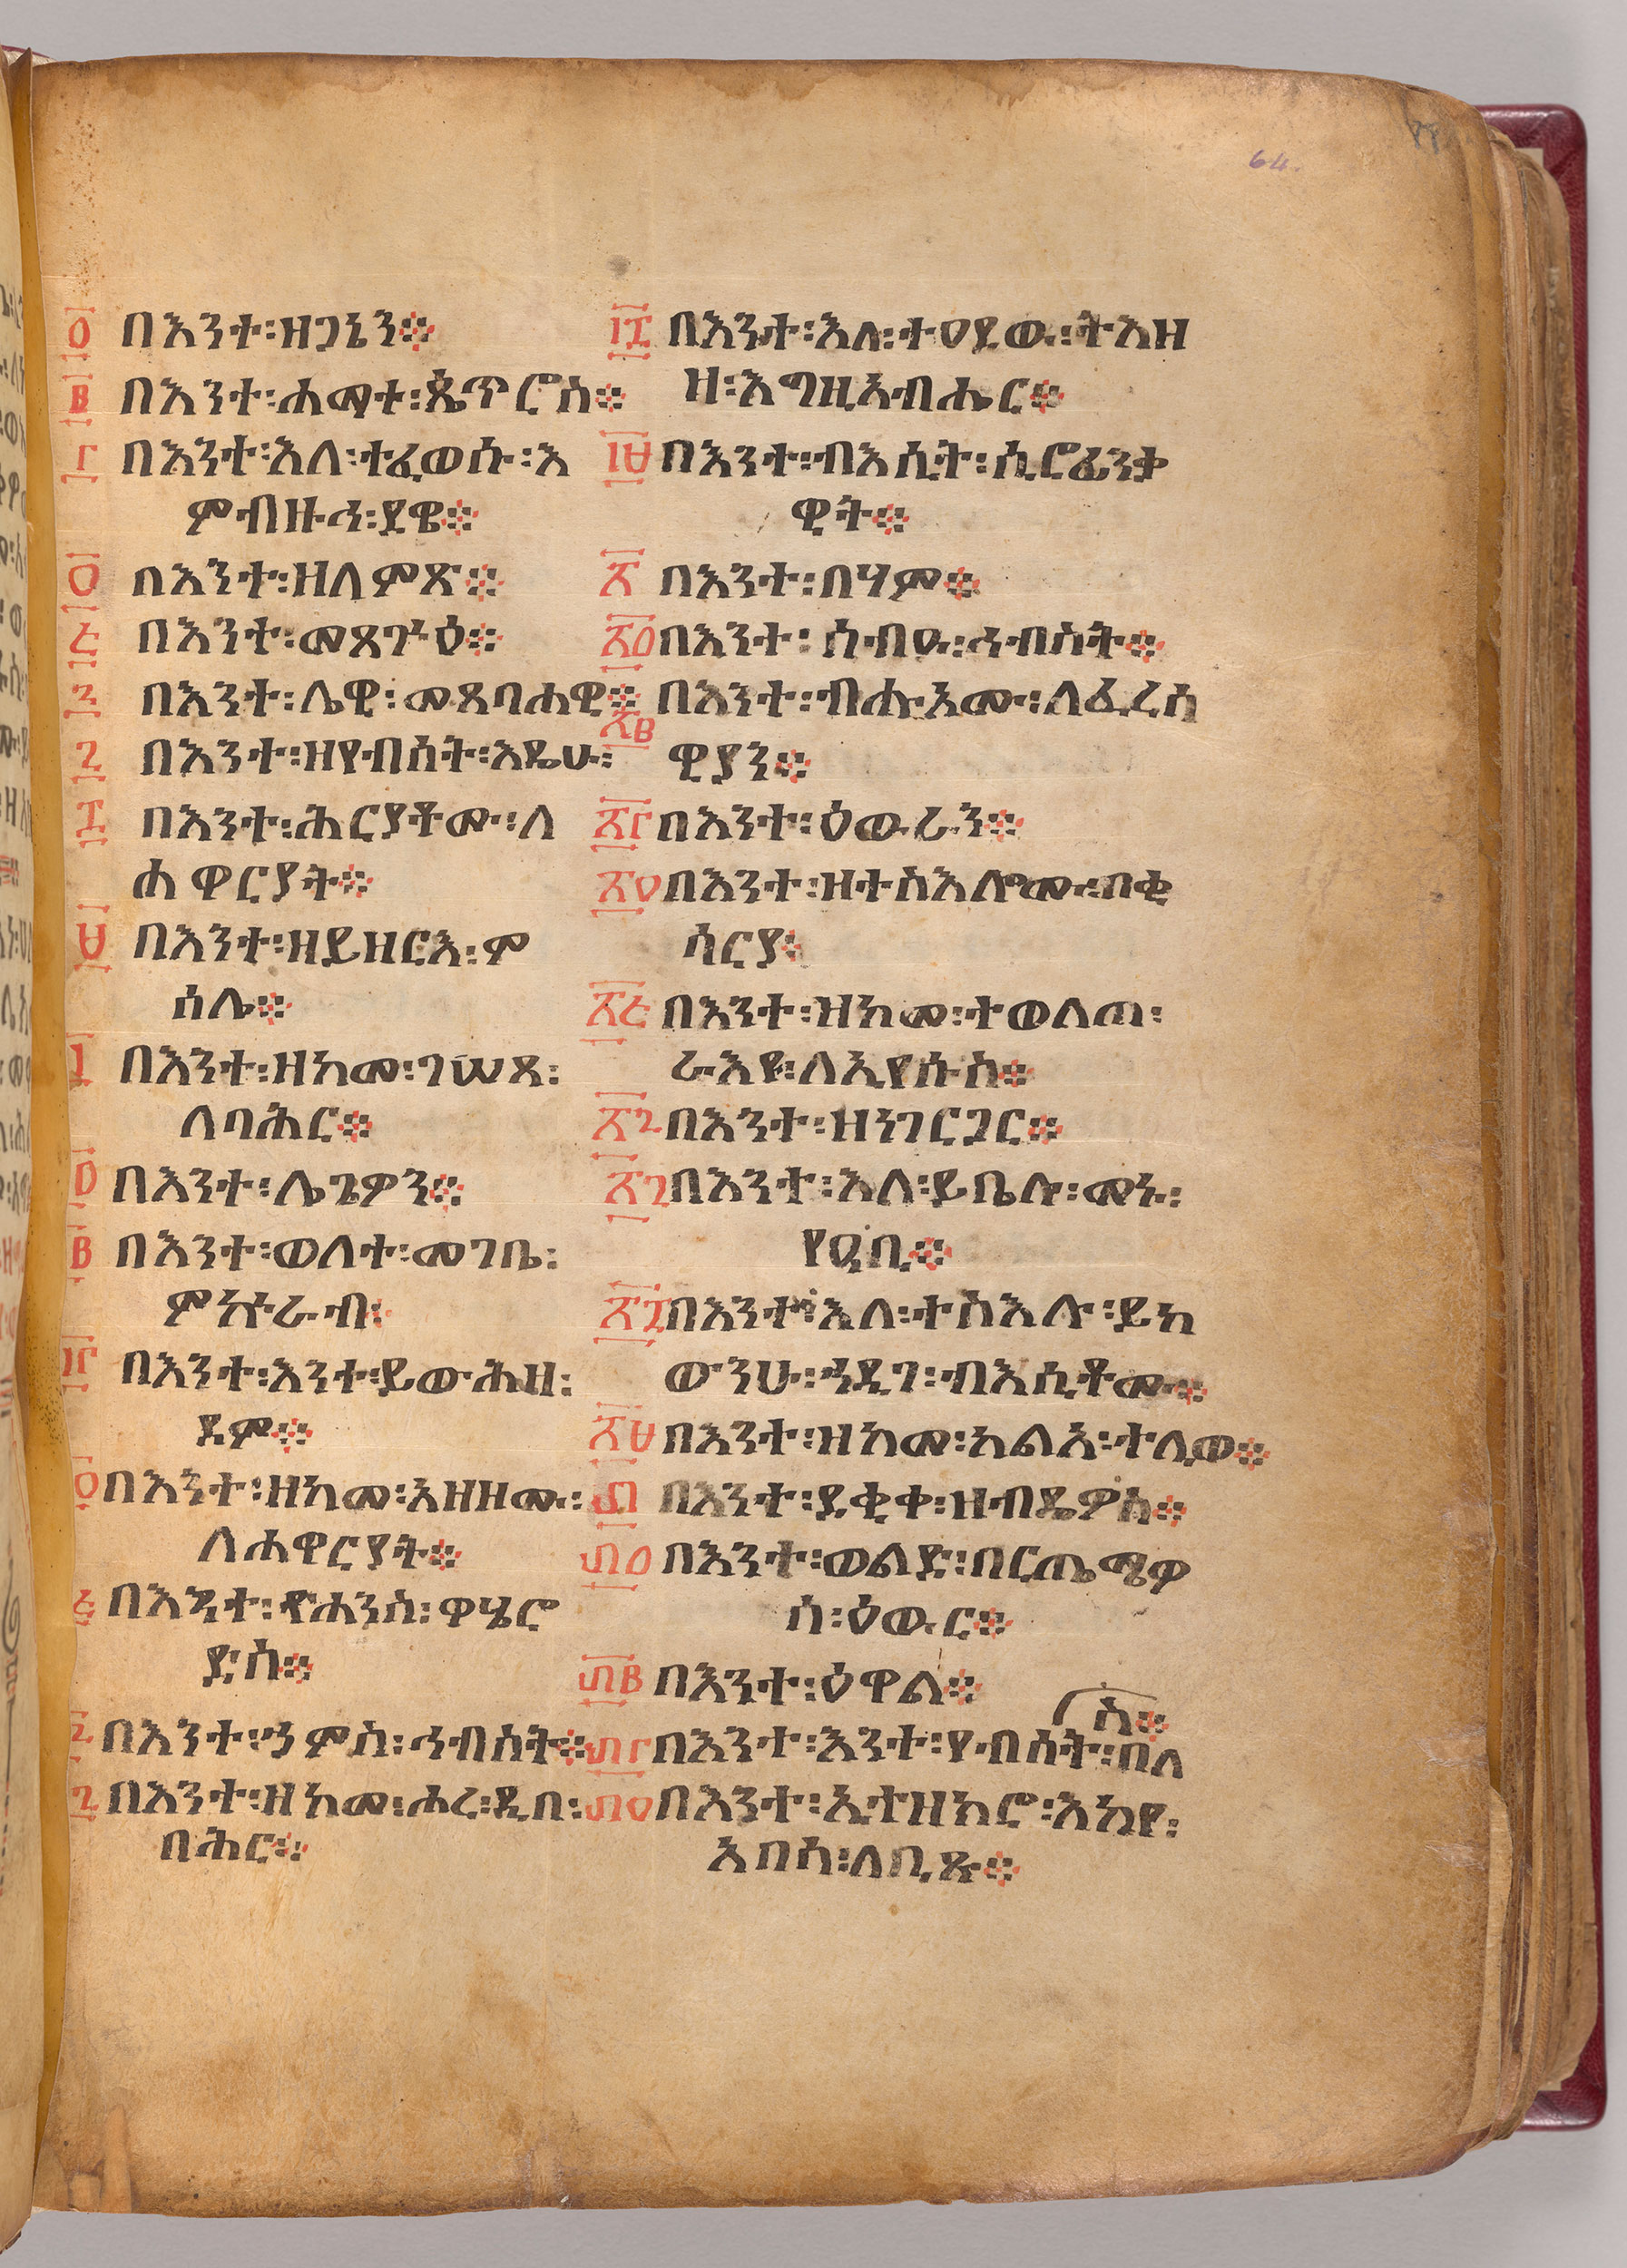 64.
፩ በእንተ፡ዘጋኔን፨
፪ በእንተ፡ሐማተ፡ጴጥሮስ፨
፫ በእንተ፡እለ፡ተፈወሱ፡እ
ምብዙኃ፡ደዌ፨
፬ በእንተ፡ዘለምጽ፨
፭ በእንተ፡መጻጉዕ፨
፮ በእንተ፡ሌዊ፡መጸባሐዊ፨
፯ በእንተ፡ዘየብሰት፡እዴሁ፡
፰ በእንተ፡ሕርያቶሙ፡ለ
ሐዋርያት፨
፱ በእንተ፡ዘይዘርእ፡ም
ሳሌ፨
፲ በእንተ፡ዘከመ፡ገሠጸ፡
ለባሕር፨
፲፩ በእንተ፡ሌጌዎን፨
፲፪ በእንተ፡ወለተ፡መገቤ፡
ምኵራብ፡
፲፫ በእንተ፡እንተ፡ይውሕዘ፡
ደም፨
፲፬ በእንተ፡ዘከመ፡አዘዘሙ፡
ለሐዋርያት፨
፲፭ በእንተ፡ዮሐንስ፡ዋሄሮ
ድስ፨
፲፮ በእንተ፡ኀምስ፡ኅብስት፨
፲፯ በእንተ፡ዘከመ፡ሖረ፡ዲበ፡
ባሕር፨
፲፰ በእንተ፡እለ፡ተዐደው፡ትእዘ
ዘ፡እግዚአብሔር፨
፲፱ በእንተ፡ብእሲት፡ሲሮፊንቃ
ዊት፨
፳ በእንተ፡በሃም፨
፳፩ በእንተ፡ሰብዑ፡ኅብስት፨
፳፪ በእንተ፡ብሑአሙ፡ለፈረሳ
ዊያን፨
፳፫ በእንተ፡ዕውራን፨
፳፬ በእንተ፡ዘተስእሎሙ፡በቂ
ሳርያ፡
፳፭ በእንተ፡ዘከመ፡ተወለጠ፡
ራእዩ፡ለኢየሱስ፨
፳፮ በእንተ፡ዘነገርጋር፨
፳፯ በእንተ፡እለ፡ይቤሉ፡መኑ፡
የዐቢ፨
፳፰ በእንተ፡እለ፡ተስእሉ፡ይከ
ውንሁ፡ኀዲገ፡ብእሲቶሙ፨
፳፱ በእንተ፡ዘከመ፡ካልእ፡ተለወ፨
፴ በእንተ፡ደቂቀ፡ዘብዴዎስ፨
፴፩ በእንተ፡ወልድ፡በርጤሜዎ
ስ፡ዕውር፨
፴፪ በእንተ፡ዕዋል፨
ስ፨
፴፫ በእንተ፡እንተ፡የብሰት፡በለ
፴፬ በእንተ፡ኢተዘክሮ፡እከየ፡
አበሳ፡ለቢጽ፨